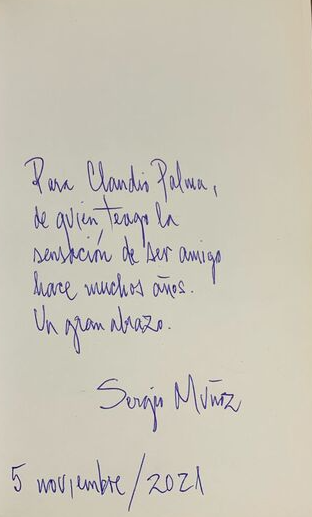 Para Claudio Palma,
de quien tengo la
sensación de ser amigo
hace muchos años.
Un gran abrazo.
Sergio Muñoz
5 noviembre/2021